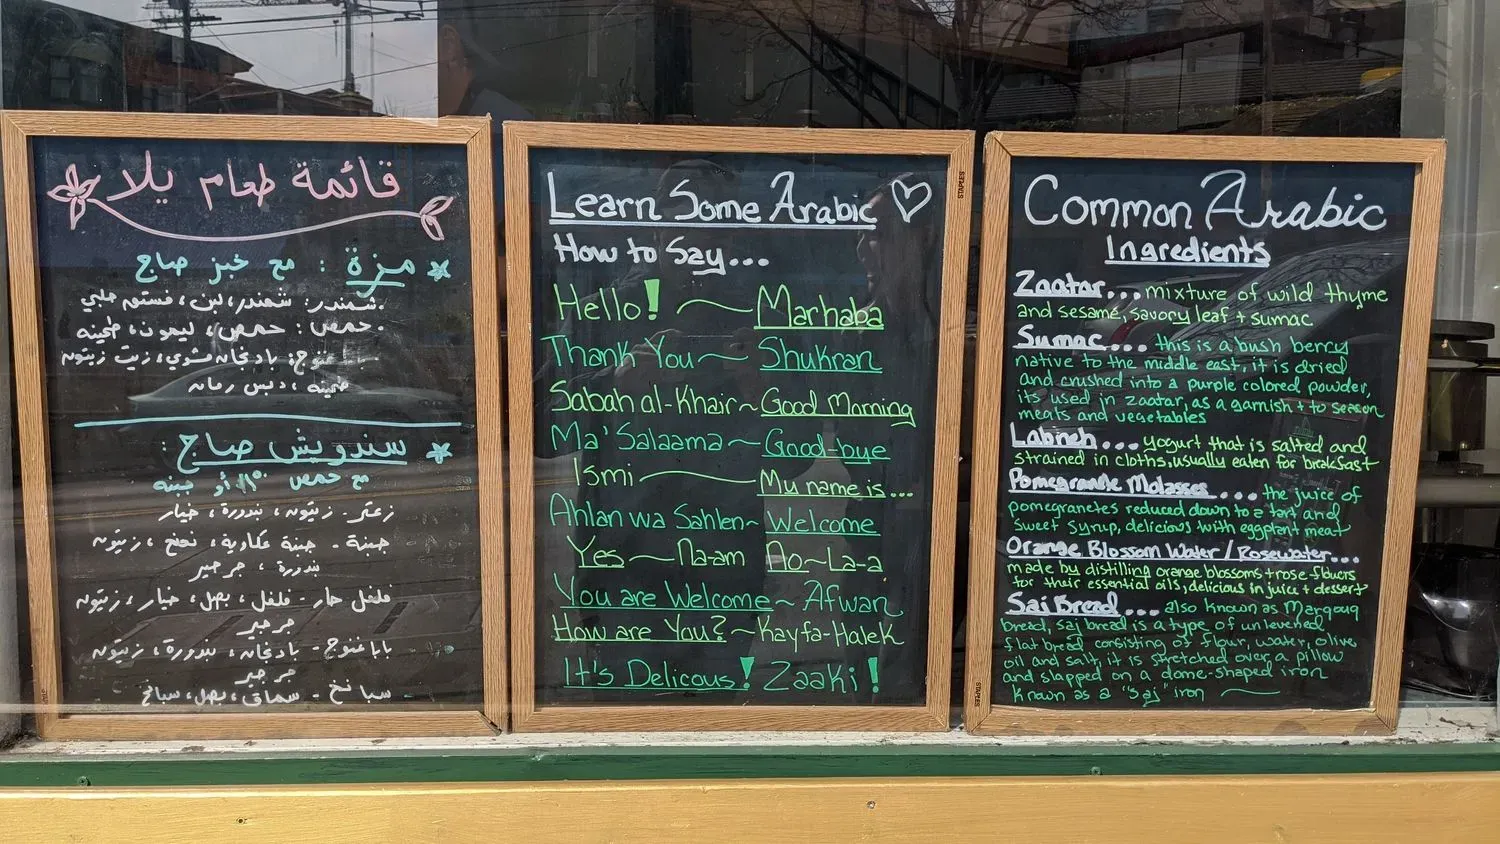 قائمة طعام يلا
مزة : مع خبز صاج
شمندر: شمندر، لبن، فستق حلبي
حمص: حمص، ليمون، طحينه
غنوج: باذنجان مشوي، زيت زيتون
طحينه، دبس رمان
سندويش صاج :
مع حمص أو جبنه
زعتر - زيتون، بندورة، خيار
جبنة - جبنة عكاوية، نعنع، زيتون
بندورة، جرجير
فلفل حار - فلفل، بصل، خيار، زيتون
جرجير
بابا غنوج - باذنجان، بندورة، زيتون
جرجير
سبانخ - سماق، بصل، سبانخ
Learn Some Arabic
How to Say...
Hello! ~ Marhaba
Thank You ~ Shukran
Sabah al-Khair ~ Good Morning
Ma' Salaama ~ Good-bye
Ismi ~ My name is...
Ahlan wa Sahlen ~ Welcome
Yes ~ Na-am No ~ La-a
You are Welcome ~ Afwan
How are You? ~ Kayfa-Halek
It's Delicous! Zaaki!
STAPLES
Common Arabic
Ingredients
Zaatar... mixture of wild thyme
and sesame, savory leaf + sumac
Sumac... this is a bush berry
native to the middle east, it is dried
and crushed into a purple colored powder,
its used in zaatar, as a garnish + to season
meats and vegetables
Labneh.... yogurt that is salted and
strained in cloths, usually eaten for breakfast
Pomegranate Molasses.... the juice of
pomegranetes reduced down to a tart and
sweet syrup, delicious with eggplant + meat
Orange Blossom Water / Rosewater...
made by distilling orange blossoms + rose flowers
for their essential oils, delicious in juice + dessert
Saj Bread... also known as Marqouq
bread, saj bread is a type of unlevened
flat bread consisting of flour, water, olive
oil and salt, it is stretched over a pillow
and slapped on a dome-shaped iron
known as a "saj" iron
STAPLES